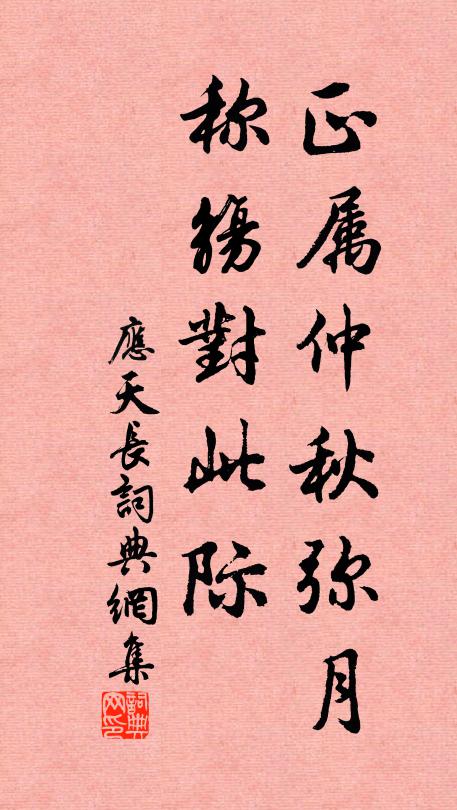 正属仲秋弥月
称觞對此际
應天長詞典網集
詞典网印